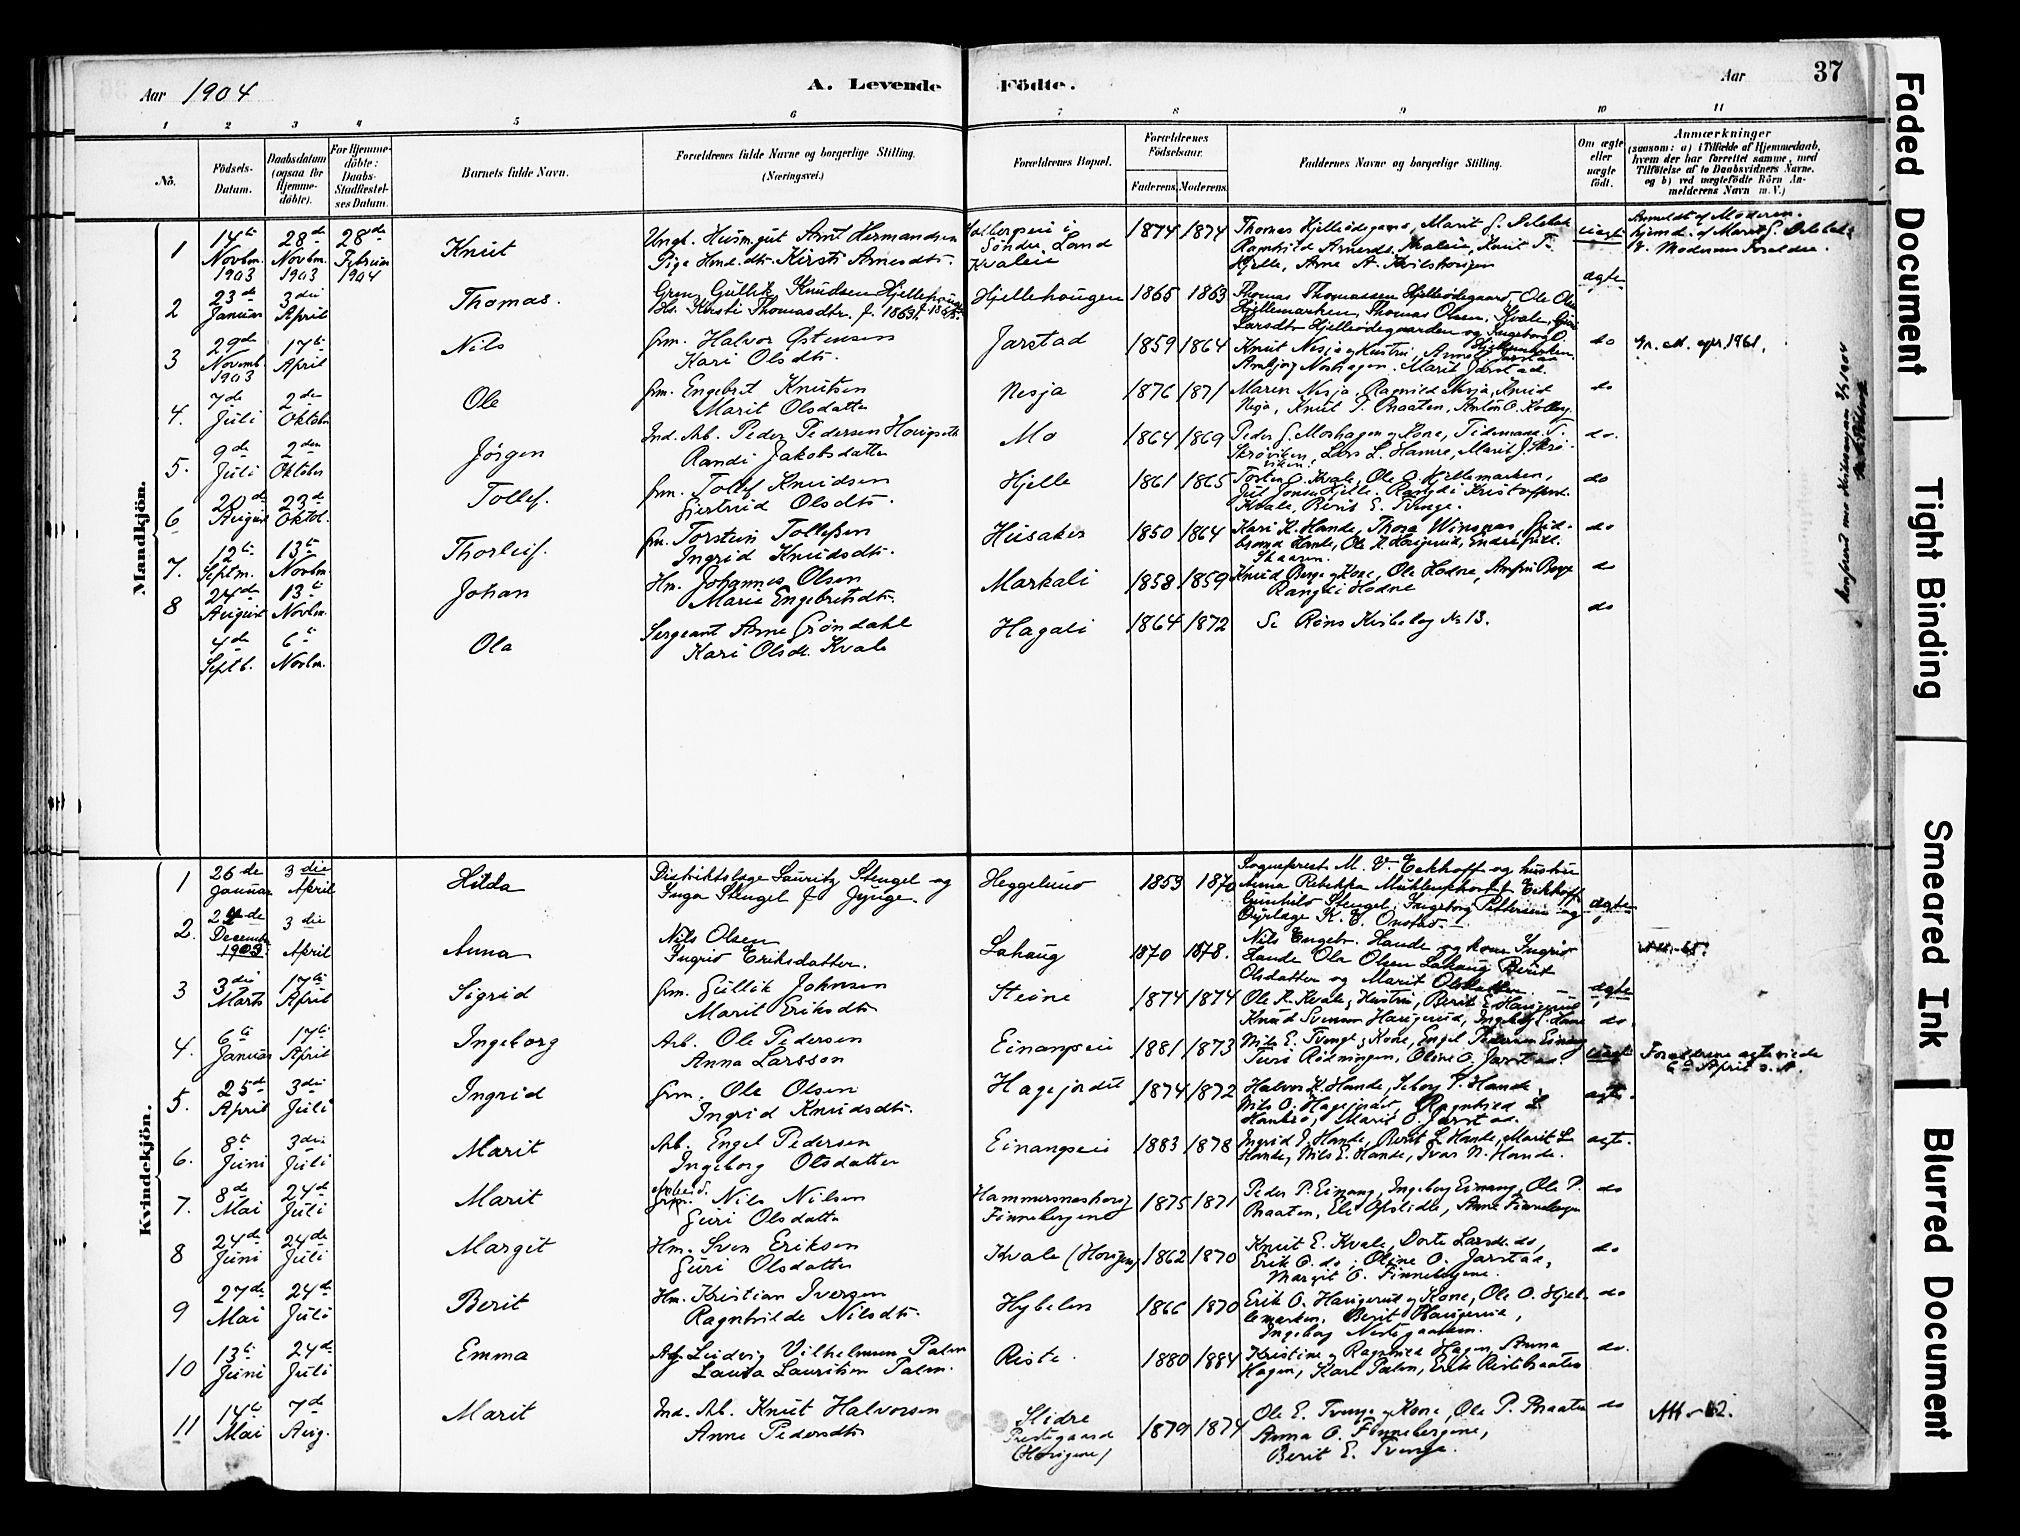 Aar 1904
A. Levende Födte.
Aar
37
1 2 3 4 5 6 7 8 9 10 11
No.
Födsels-
Datum.
Daabsdatum
(ogsaa for
Hjemme-
döbte).
For Hjemme-
döbte:
Daabs-
Stadfæstel-
ses Datum.
Barnets fulde Navn.
Forældrenes fulde Navne og borgerlige Stilling.
(Næringsvei.)
Forældrenes Bopæl.
Forældrenes
Födselsaar.
Faderens. Moderens.
Faddernes Navne og borgerlige Stilling.
Om ægte
eller
uægte
født.
Anmærkninger
(saasom: a) i Tilfælde af Hjemmedaab,
hvem der har forrettet samme, med
Tilföielse af to Daabsvidners Navne,
og b) ved uægtefödte Börn An-
melderens Navn m. V.)
Mandkjön.
1 14de Novbm. 1903 28de Novbm. 1903 28de Februar 1904
Knut
Ungk. Husm.gut Arnt Hermandsen
Pige Husm.dtr. Kirsti Arnesdtr.
Søndre Land
Kvaleie
1874 1874
Thomas Hjelleødegaard, Marit G.
Ragnhild Arnesd. Kvaleie, Knut T.
Hjelle, Arne A.
uægte
Anmeldt af Moderen.
2 23de Januar 3die April
Thomas.
Gbr. Gullik Knudsen Hjellehougen
Kirsti Thomasdtr. f. 1863
Hjellehougen 1865 1863
Thomas Thomassen Hjelleødegaard, Ole Olsen
Hjellemarken, Thomas Olsen, Kvale, Guri
Larsdtr. Hjelleødegaarden og Ingeborg O.
Hjellemarken
ægte
3 29de Novemb. 1903 17de April
Nils
Grm. Halvor Østensen
Kari Olsdtr.
Jarstad 1859 1864
Knut Nesja og Hustru, Arne Jarstad
Moshagen. Marit Jarstad.
do
4. 7de Juli 2den Oktober
Ole
Grm. Engebrit Knutsen
Marit Olsdatter
Nesja 1876 1871
Maren Nesja, Ragnild Nesja, Knud
Nesja, Knut T. Braaten, Anton O.
do
5. 9de Juli 2den Oktober
Jörgen
Ind. Arb. Peder Pedersen
Randi Jakobsdatter
Mo 1864 1869
Peder G. Moshagen og Kone, Tidemand T.
Strøviken, Lars L. Hamre, Marit J. Strø-
viken.
do.
6 20de August 23de Oktbr.
Tollef.
Grm. Tollef Knudsen
Gjertrud Olsdtr.
Hjelle 1861 1865
Torstein G. Kvale, Ole O. Hjellemarken,
Kvale, Berit E. Tvenge.
do
7. 12te Septm. 13de Novbm.
Thorleif.
Grm. Torstein Tollefsen
Ingrid Knudsdtr.
Husaker 1850 1864
Kari K. Hande, Thora Winsnes, Gud-
brand Hande, Ole K. Haugerud, Endre
do
8 24de August 13de Novbm.
Johan
Hm. Johannes Olsen
Marie Engebretsdtr.
Markali 1858 1859
Knud Berge og Kone, Ole Hodne, Berge
Rangdi Hodne
do
4de Septb. 6te Novbm.
Ola
Sergeant Arne Grøndahl
Kari Olsdt. Kvale
Hagali 1864 1872
Se Røns Kirkebog No 13.
do
Kvindekjön.
1 26de Januar 3die April
Hilda
Distriktslæge Lauritz Stengel og
Inga Stengel f.
Heggelund 1859 1870
Sogneprest M. V. Eckhoff og hustru
Anna Rebekka Eckhoff
Gunhild Stengel, Ingeborg Pettersen og
Dyrlæge K. E. Onstad.
ægte
2. Decemb. 1903. 3die April
Anna
Nils Olsen
Ingrid Eriksdatter.
Lahaug 1870 1878.
Nils Engebr. Hande og kone Ingrid
Hande Ole Olsen Lahaug Berit
Olsdatter og Marit Olsdatter.
ægte
3 3die Marts 17de April
Sigrid
Grm. Gullik Johnsen
Marit Eriksdtr.
Steine 1874 1874
Ole K. Kvale, Hustru, Berit E. Haugerud,
Knud Svensen Haugerud, Ingeborg
do.
4. 6te Januar 17de April
Ingeborg
Arb. Ole Pedersen
Anna Larsson
Einangseie 1881 1873
Nils E. Tvenge og Kone, Engel Pedersen Einang
Turi Rudningen, Oline O. Jarstad.
uægt
Forældrene ægteviede
6te April s. A.
5. 25de April 3die Juli
Ingrid
Grm. Ole Olsen
Ingrid Knudsdtr.
Hagejordet 1874 1872
Halvor K. Hande, T. Hande
Nils O. Hagejordet, Ragnhild L.
Hambro, Marit O. Jarstad.
ægte.
6. 8de Juni 3die Juli
Marit
Arb. Engel Pedersen
Ingeborg Olsdatter
Einangseie 1883 1878
Ingrid J. Hande, Berit L. Hande, Marit L.
Hande, Nils E. Hande, Ivar N. Hande.
ægt.
7. 8de Mai 24de Juli
Marit
Arbeid. Nils Nilsen
Guri Olsdatter
Hammersneshaug
Finnebergene
1875 1871
Peder P. Einang, Ingeborg Einang, Ole P.
Braaten, Eli Ofstidle, Anne Finnebergen
do
8 24de Juni 24de Juli
Margit
Hm. Sven Eriksen
Guri Olsdatter
Kvale (Horigen) 1862 1870
Knut E. Kvale, Dorte Larsd. do,
Erik O. do, Oline O. Jarstad,
Margit O. Finnebergene.
do
9 27de Mai 24de Juli
Berit
Hm. Kristian Iversen
Ragnhilde Nilsdtr.
Hybelen 1866 1870
Erik O. Haugerud og Kone, Ole O. Hjel-
lemarken, Berit Haugerud,
Ingeborg
do
10 13de Juni 24de Juli
Emma
Ludvig Vilhelmsen Palm
Laura Lauritsen Palm.
Riste. 1880 1884
Kristine og Ragnhild Hagen, Anna
Hagen, Karl Palm, Erik Ristebraaten
do.
11 14de Mai 7de Aug.
Marit
Ind. Arb. Knut Halvorsen
Anne Pedersdtr.
Slidre
Prestegaard
(Horigene)
1879 1874
Ole E. Tvenge og Kone, Ole P. Braaten
Anna O. Finnebergene,
Berit E. Tvenge.
do
Faded Document
Tight Binding
Smeared Ink
Blurred Document